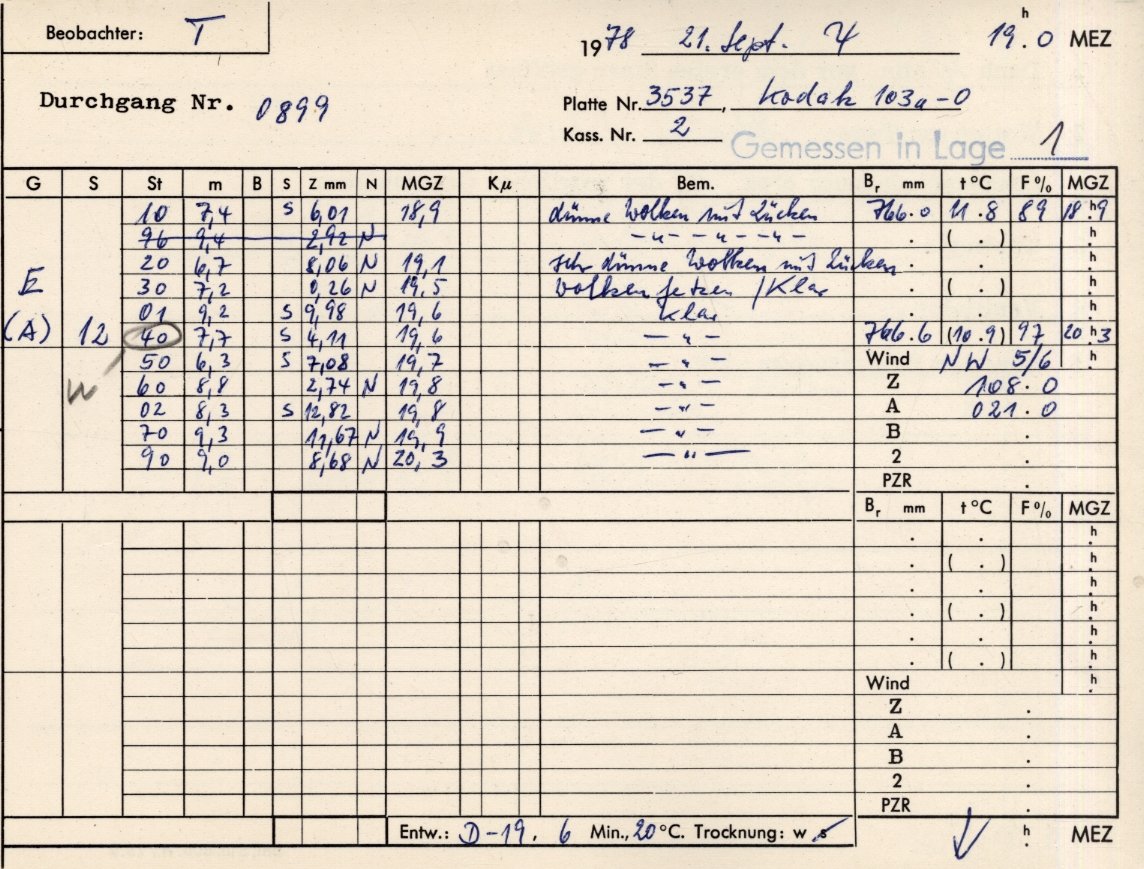 Beobachter: T
1978 21. Sept. 4 19h.0 MEZ
Durchgang Nr. 0899
Platte Nr. 3537, Kodak 103a-O
Kass. Nr. 2
Gemessen in Lage 1
G S St m B S Z mm N MGZ Kµ Bem. Br mm t °C F % MGZ
10 7,4 S 6,01 18,9 dünne Wolken mit Lücken 766.0 11.8 89 18h.9
96 9,4 2,92 N -"- -"- -"- . ( . ) h.
20 6,7 8,06 N 19,1 sehr dünne Wolken mit Lücken . . h.
E 30 7,2 0,26 N 19,5 Wolkenfetzen / Klar . ( . ) h.
01 9,2 S 9,98 19,6 Klar . . h.
(A) 12 40 7,7 S 4,11 19,6 -"- 766.6 (10.9) 97 20h.3
50 6,3 S 7,08 19,7 -"- Wind NW 5/6 h.
W 60 8,8 2,74 N 19,8 -"- Z 108.0
02 8,3 S 12,82 19,8 -"- A 021.0
70 9,3 11,67 N 19,9 -"- B .
90 9,0 8,68 N 20,3 -"- 2 .
PZR .
Br mm t °C F % MGZ
. . h.
. ( . ) h.
. . h.
. ( . ) h.
. . h.
. ( . ) h.
Wind h.
Z .
A .
B .
2 .
PZR .
Entw.: D-19. 6 Min., 20 °C. Trocknung: w s h. MEZ